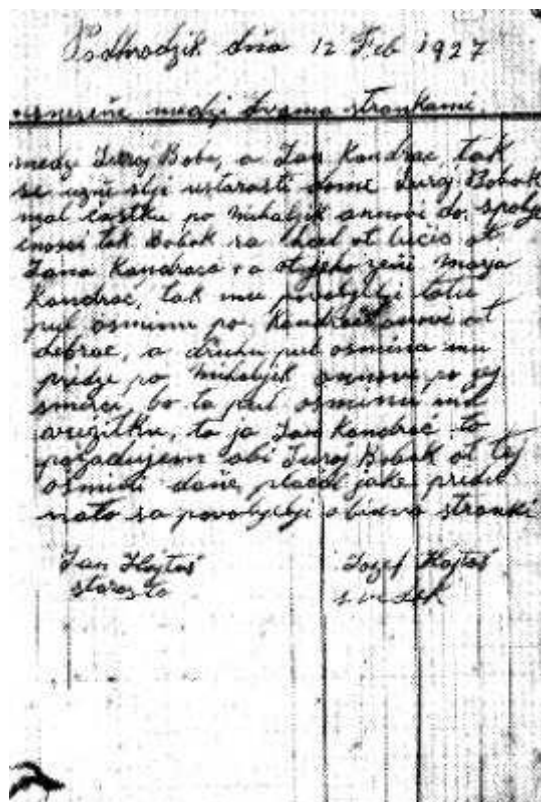 Podhrodzik dňa 12 Feb 1927
usnereňe medzi dvoma strankami.
medzi Juroj Bobo, a Jan Kandrac, tak
se uzňe slji ustarasti dome Juroj Bobok
mal castku po Mihaljik annovi do spolu
tak Bobok sa Chcel ot lučic ot
Jana Kandraca a otjeho ženi Marja
Kandrac, tak mu povoljilji totu
pul osminu po Kandrac annovi ot
debrac, a druhu pul osmina mu
pridze po Mihaljik annovi po jej
smerci, bo ta pul osminu ma
vuzitku, to ja Jan Kandrač to
pozadujem abi Juroj Bobok ot tej
osmini daňe placel jake pridu
nato sa povoljilji obidva stranki
Jan Hojtaš
starosta
Jozef Hojtaš
svedek